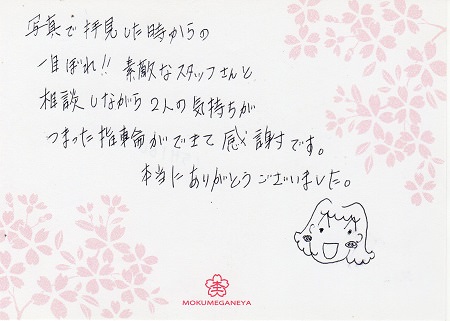 写真で拝見した時からの
一目ぼれ!! 素敵なスタッフさんと
相談しながら2人の気持ちが
つまった指輪ができて感謝です。
本当にありがとうございました。
MOKUMEGANEYA